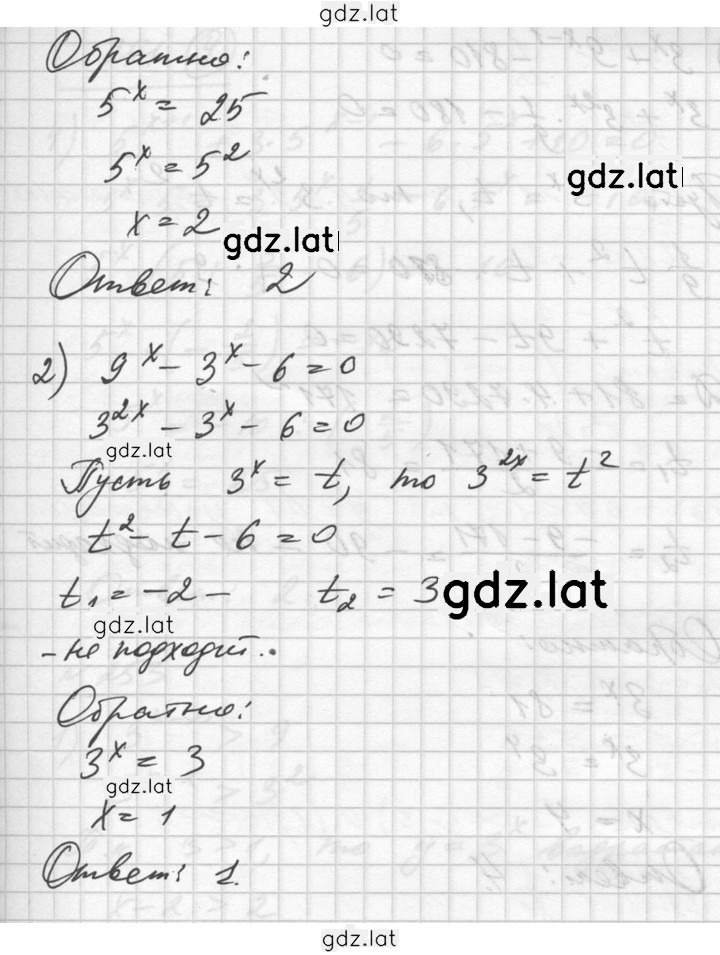 gdz.lat
Обратно:
5^x = 25
5^x = 5^2
gdz.lat
x = 2
gdz.lat
Ответ: 2
2) 9^x - 3^x - 6 = 0
3^{2x} - 3^x - 6 = 0
gdz.lat
Пусть 3^x = t, то 3^{2x} = t^2
t^2 - t - 6 = 0
t_1 = -2 - t_2 = 3
gdz.lat
gdz.lat
- не подходит.
Обратно:
3^x = 3
gdz.lat
x = 1
Ответ: 1.
gdz.lat